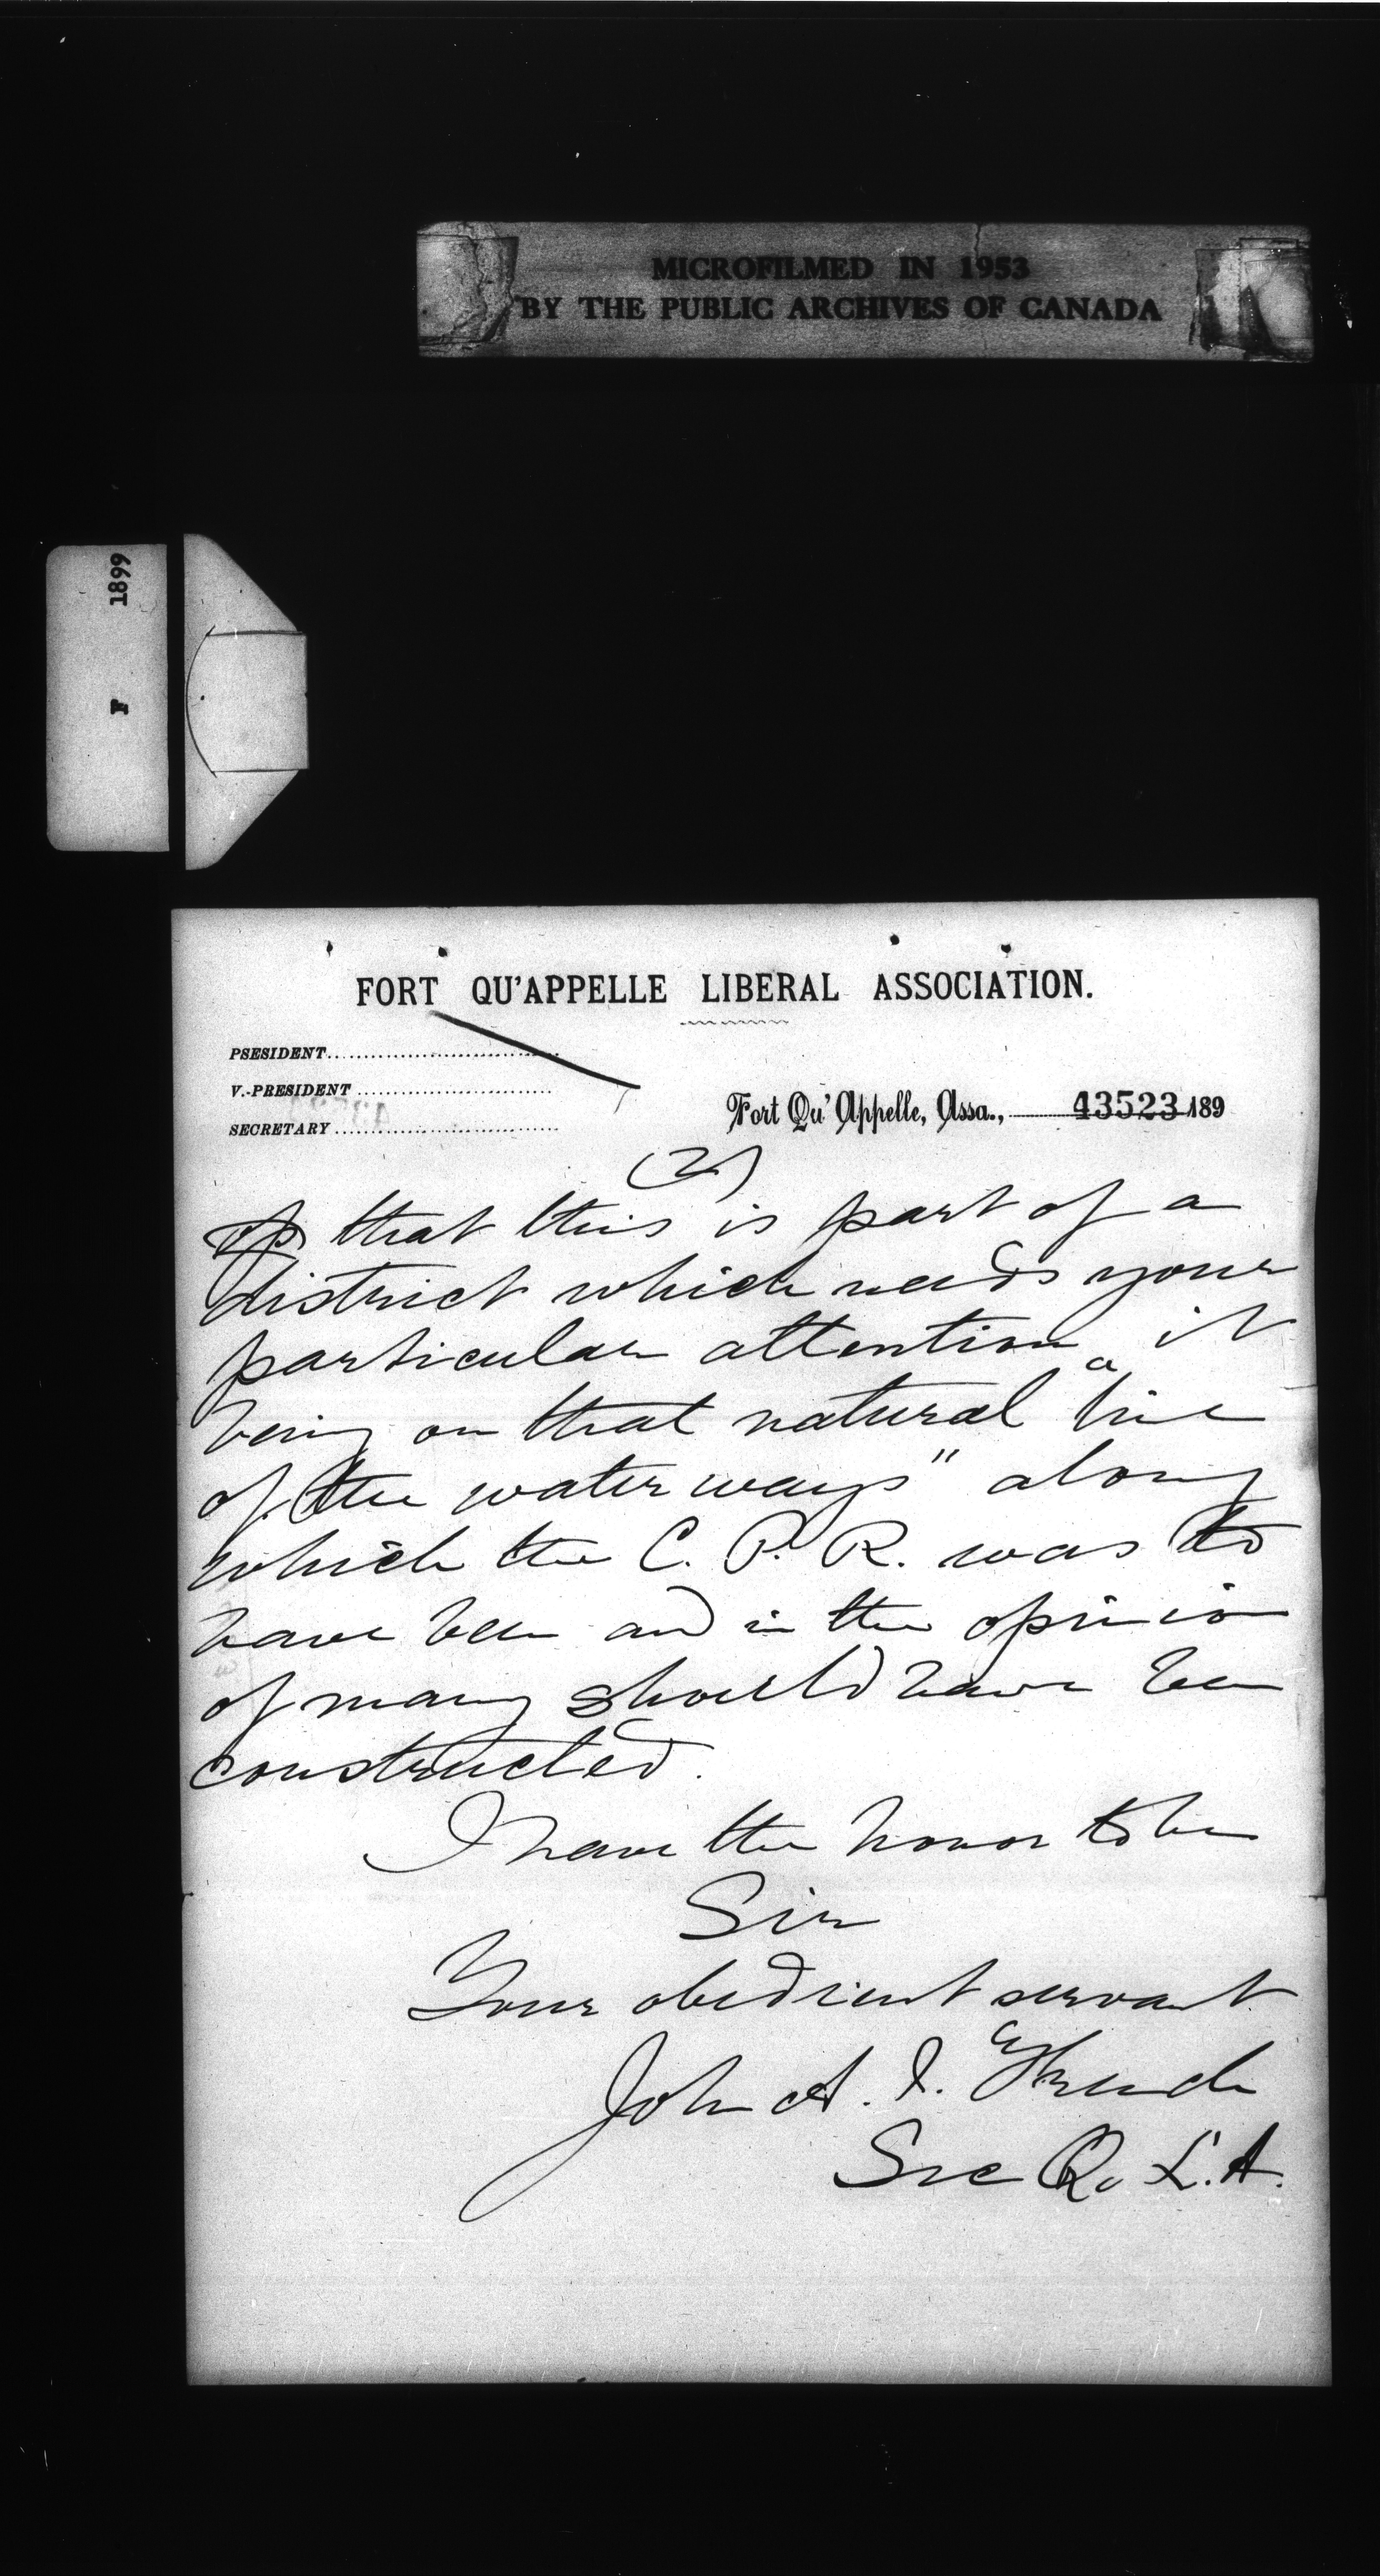 MICROFILMED IN 1953
BY THE PUBLIC ARCHIVES OF CANADA
F 1899
FORT QU'APPELLE LIBERAL ASSOCIATION.
PSESIDENT
V.-PRESIDENT
SECRETARY
Fort Qu'Appelle, Assa., 43523 189
(2)
that this is part of a
district which needs your
particular attention it
being on that natural "line
of the water ways" along
which the C. P. R. was to
have been and in the opinion
of many should have been
constructed.
I have the honor to be
Sir
Your obedient servant
John A. I. French
Sec Q. L. A.